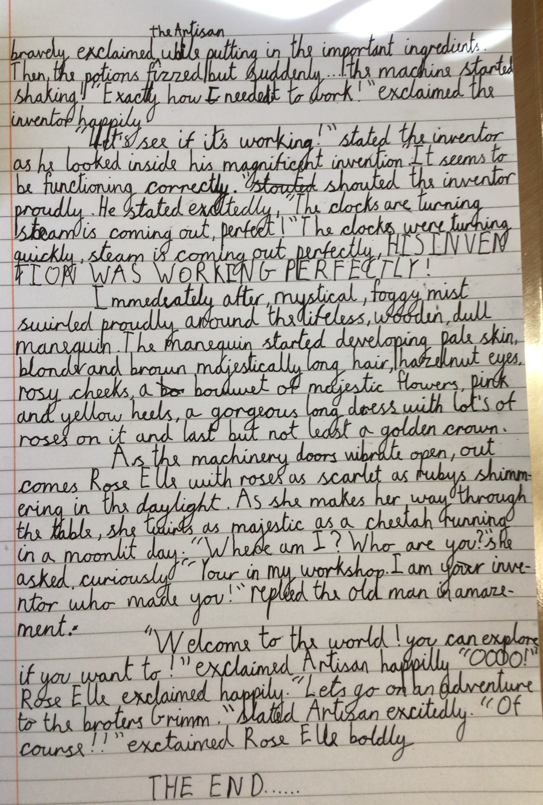 the Artisan
bravely, exclaimed while putting in the important ingredients.
Then, the potions fizzed but suddenly... the machine started
shaking! "Exactly how I needed it to work!" exclaimed the
inventor happily.
"Let's see if it's working!" stated the inventor
as he looked inside his magnificent invention. It seems to
be functioning correctly. "stouted shouted the inventor
proudly. He stated excitedly, "The clocks are turning
steam is coming out, perfect!" The clocks were turning
quickly, steam is coming out perfectly, HIS INVEN
TION WAS WORKING PERFECTLY!
Immediately after, mystical, foggy mist
swirled proudly around the lifeless, wooden, dull
manequin. The manequin started developing pale skin,
blonde and brown majestically long hair, hazelnut eyes,
rosy cheeks, a bo bouwet of majestic flowers, pink
and yellow heels, a gorgeous long dress with lot's of
roses on it and last but not least a golden crown.
As the machinery doors vibrate open, out
comes Rose Elle with roses as scarlet as rubys shimm-
ering in the daylight. As she makes her way through
the table, she twirls as majestic as a cheetah running
in a moonlit day. "Where am I? Who are you?" she
asked, curiously. "Your in my workshop. I am your inve-
ntor who made you!" replied the old man in amaze-
ment.
"Welcome to the world! you can explore
if you want to!" exclaimed Artisan happilly "OOOO!"
Rose Elle exclaimed happily. "Lets go on an adventure
to the broters Grimm." stated Artisan excitedly. "Of
course!!" exctaimed Rose Elle boldly
THE END......